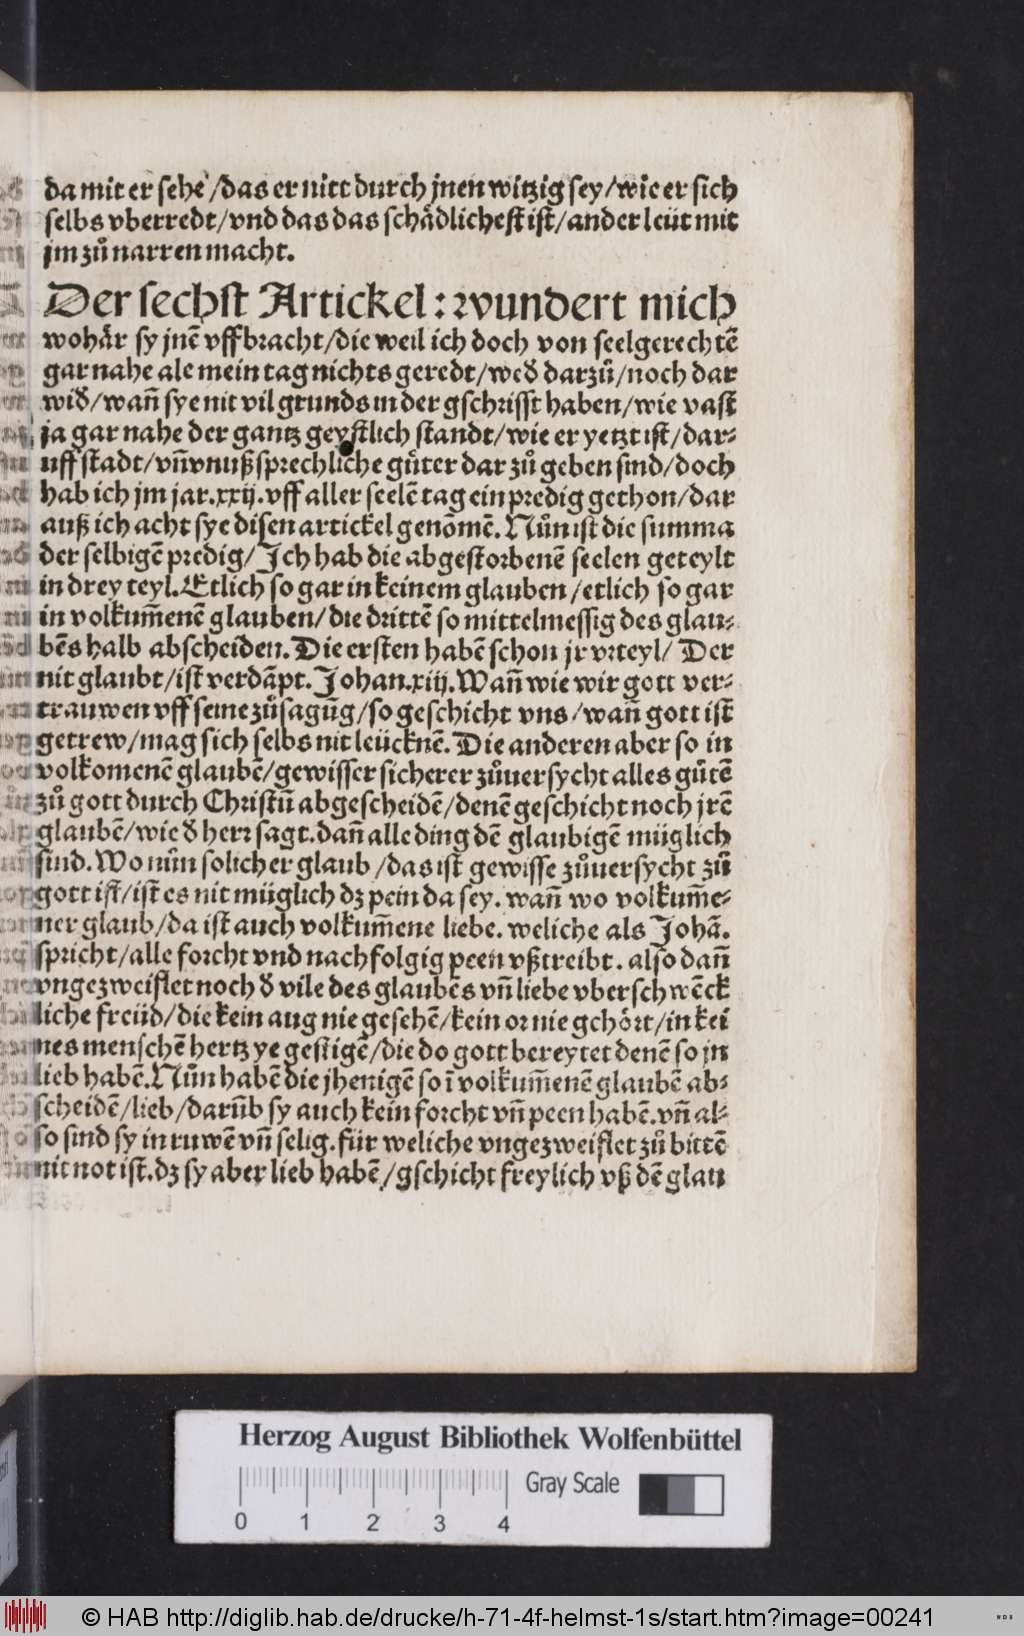 da mit er sehe /das er nitt durch jnen witzig sey/wie er sich
selbs vberredt/vnd das das schaͤdlichest ist/ander leüt mit
jm zuͦ narren macht.
Der sechst Artickel: wundert mich
wohaͤr sy jnē vffbracht/die weil ich doch von seelgerechtē
gar nahe ale mein tag nichts geredt/wed̕ darzuͦ/noch dar
wid̕/wañ sye nit vil grunds in der gschrifft haben/wie vast
ja gar nahe der gantz geystlich standt/wie er yetzt ist/dar⸗
uff stadt/vñ vnußsprechliche guͤter dar zuͦ geben sind/doch
hab ich jm jar.xxij.vff aller seelē tag ein predig gethon/dar
auß ich acht sye disen artickel genōmē. Nuͦn ist die summa
der selbigē predig/Ich hab die abgestorbenē seelen geteylt
in drey teyl. Etlich so gar in keinem glauben /etlich so gar
in volkum̄enē glauben/die drittē so mittelmessig des glau⸗
bēs halb abscheiden. Die ersten habē schon jr vrteyl/ Der
nit glaubt/ist verdāpt. Johan.xiij. Wañ wie wir gott ver⸗
trauwen vff seine zuͦsagūg/so geschicht vns/wañ gott ist
getrew/mag sich selbs nit leücknē. Die anderen aber so in
volkomenē glaubē/gewisser sicherer zuͦuersycht alles guͤtē
zuͦ gott durch Christū abgescheidē/denē geschicht noch jrē
glaubē/wie d̕ herr sagt.dañ alle ding dē glaubigē müglich
sind. Wo nuͦn solicher glaub /das ist gewisse zuͦuersycht zuͦ
gott ist/ist es nit müglich dz pein da sey. wañ wo volkum̄e⸗
ner glaub/da ist auch volkum̄ene liebe. weliche als Johā.
spricht/alle forcht vnd nachfolgig peen vßtreibt. also dañ
vngezweiflet noch d̕ vile des glaubēs vñ liebe vberschwēck
liche freüd/die kein aug nie gesehē/kein or nie gehoͤrt/in kei
nes menschē hertz ye gestigē/die do gott bereytet denē so jn
lieb habē. Nuͦn habē die jhenigē so ī volkum̄enē glaubē ab⸗
scheidē/lieb/darūb sy auch kein forcht vñ peen habē.vñ al⸗
so sind sy in ruwē vñ selig. für weliche vngezweiflet zuͦ bittē
nit not ist.dz sy aber lieb habē/gschicht freylich vß dē glau
Herzog August Bibliothek Wolfenbüttel
Gray Scale
0 1 2 3 4
© HAB http://diglib.hab.de/drucke/h-71-4f-helmst-1s/start.htm?image=00241